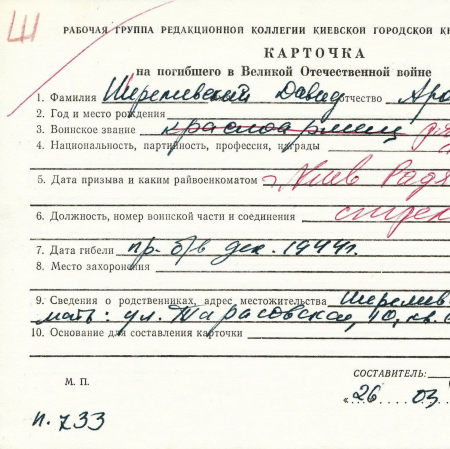 Ш
РАБОЧАЯ ГРУППА РЕДАКЦИОННОЙ КОЛЛЕГИИ КИЕВСКОЙ ГОРОДСКОЙ КН
КАРТОЧКА
на погибшего в Великой Отечественной войне
1. Фамилия Ширемивский Давид отчество Аро
2. Год и место рождения
3. Воинское звание красноармеец
4. Национальность, партийность, профессия, награды
5. Дата призыва и каким райвоенкоматом Киев Радя
6. Должность, номер воинской части и соединения стрел
7. Дата гибели пр. б/в дек. 1944г.
8. Место захоронения
9. Сведения о родственниках, адрес местожительства Ширемив
мать: ул. Тарасовская, 10, кв. 6
10. Основание для составления карточки
СОСТАВИТЕЛЬ:
М. П.
« 26 03
п. 733